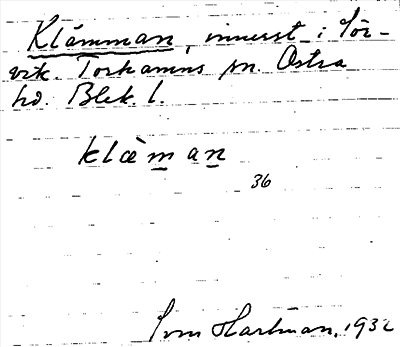 Klämman, innerst i Tor-
vik. Torhamns sn. Östra
hd. Blek. l.
klæman
36
Ivm Hartman, 1932